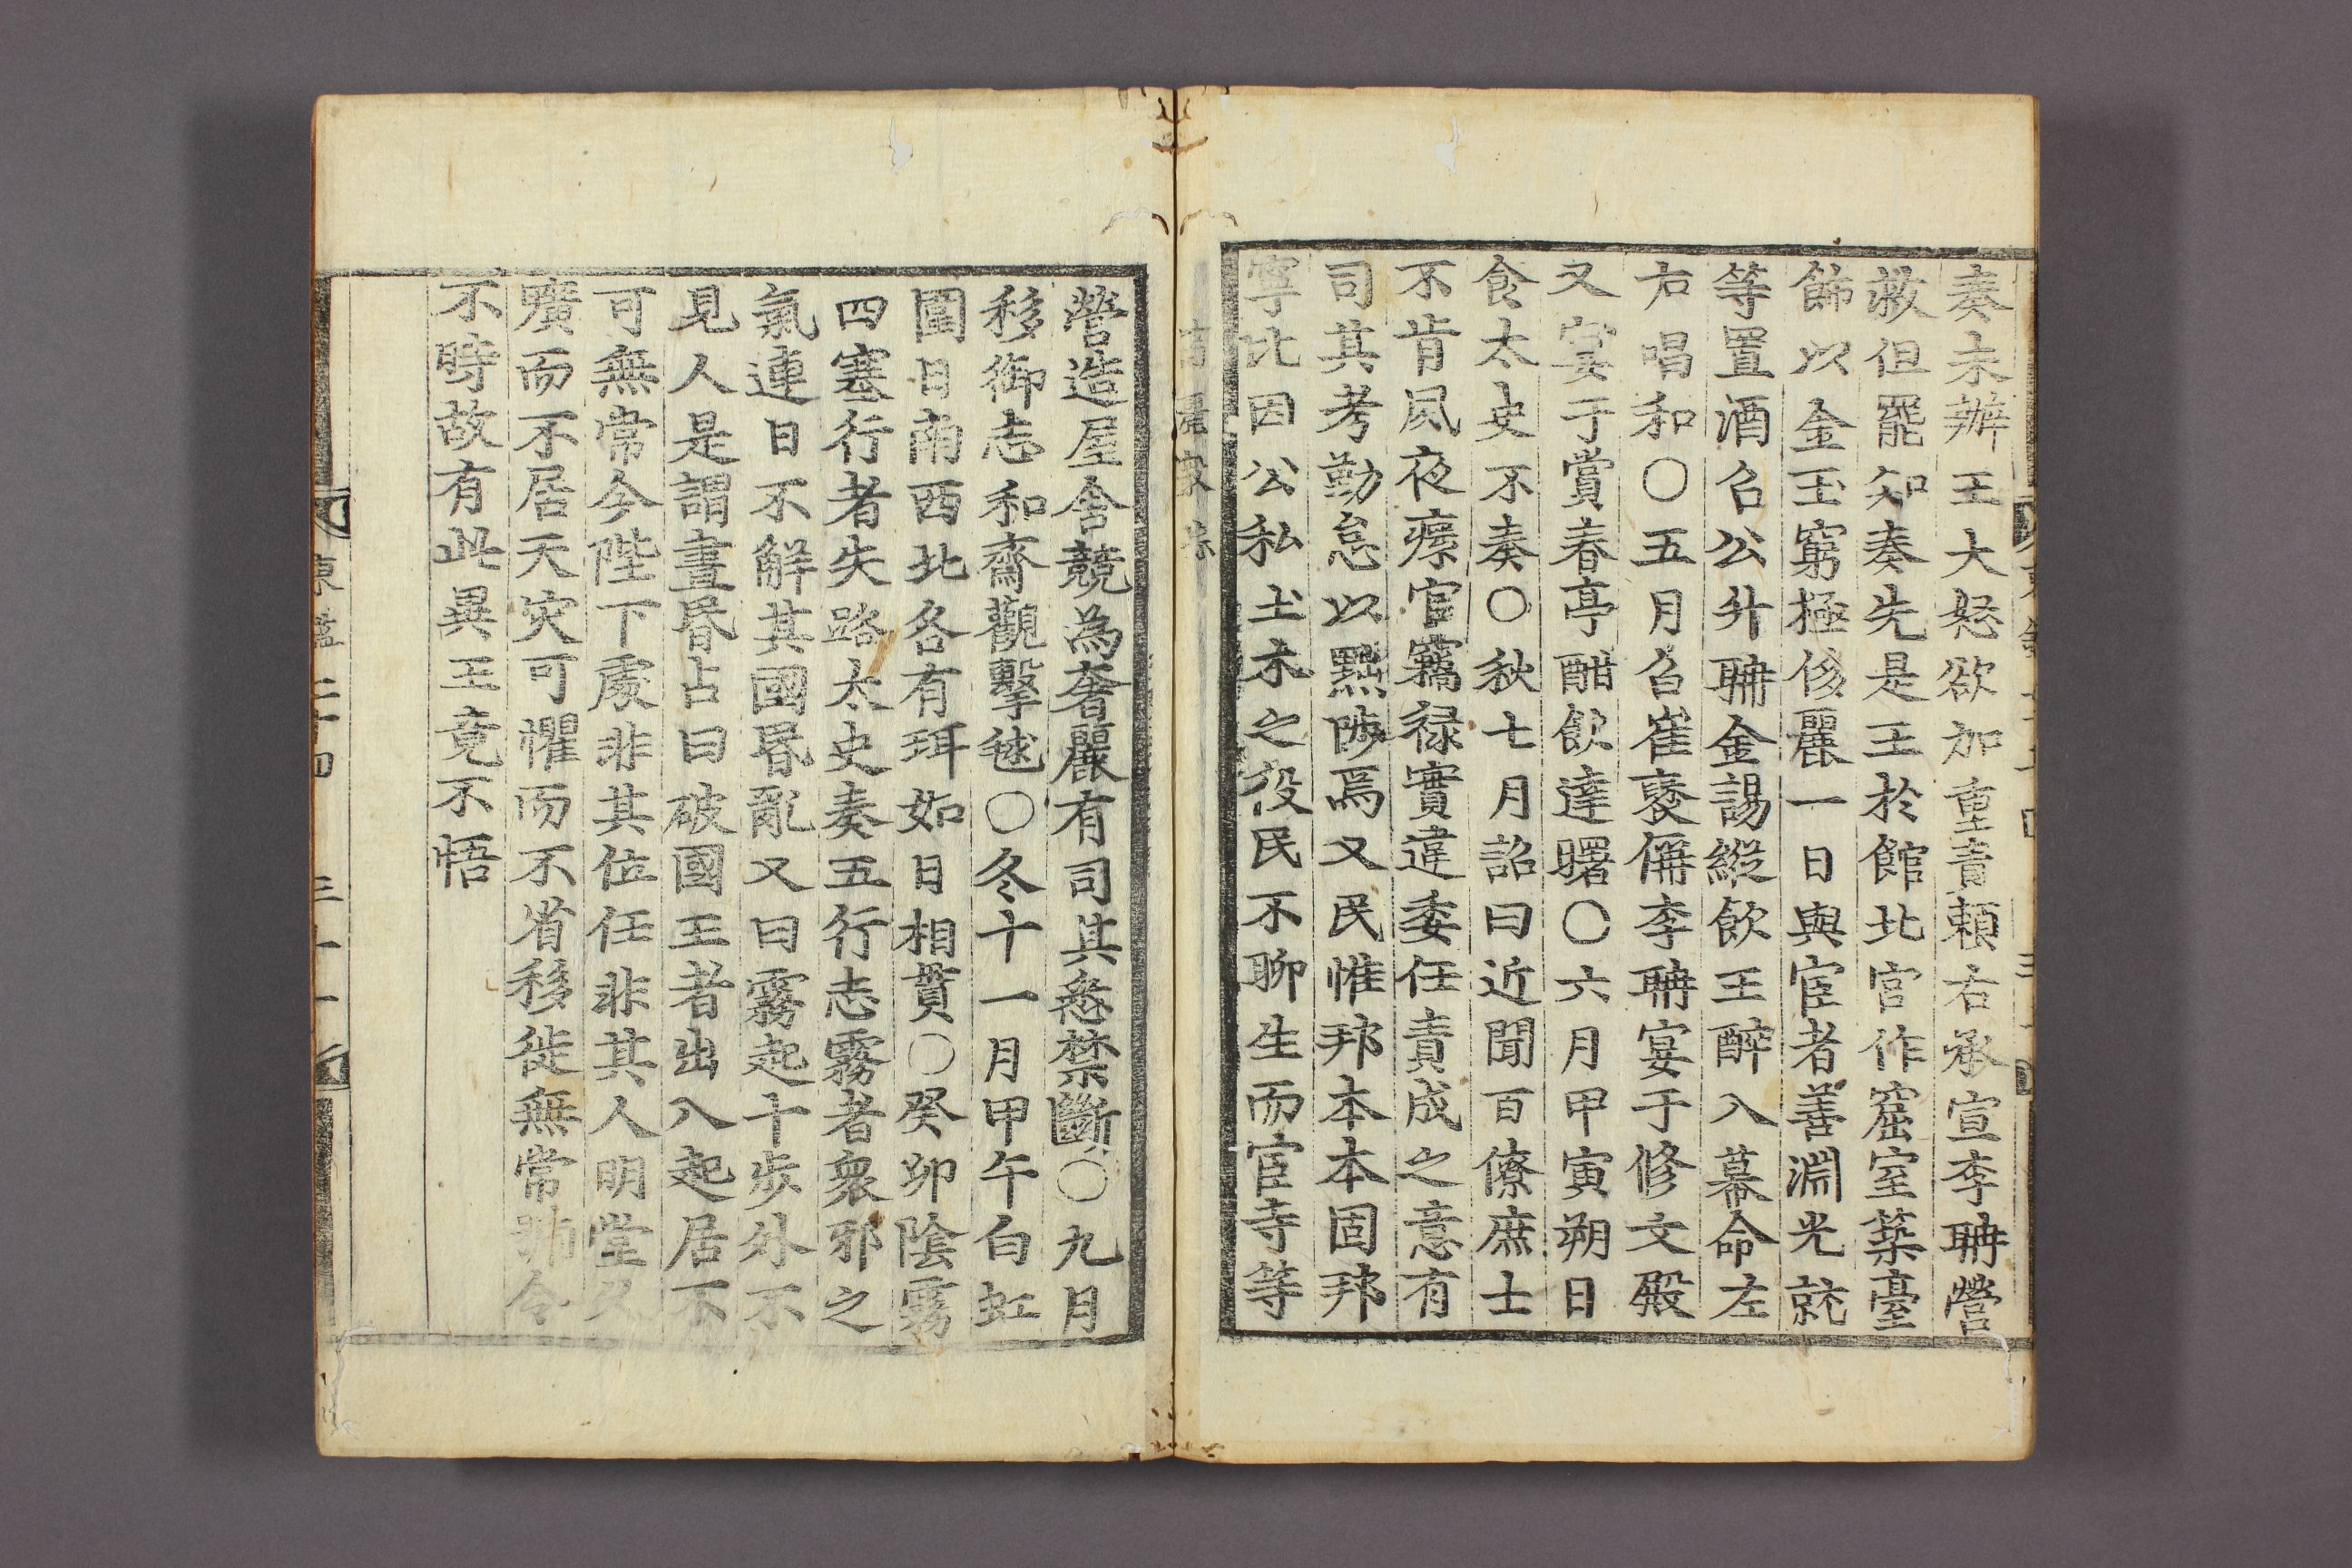 奏未辦王大怒欲加重責賴右承宣李聃營
救但罷知奏先是王於館北宮作窟室築臺
餙以金玉窮極侈麗一日與宦者善淵光就
等置酒召公升聃金諹縱飮王醉入幕命左
右唱和○五月召崔褎偁李聃宴于修文殿
又宴于賞春亭酣飮達曙○六月甲寅朔日
食太史不奏○秋七月詔曰近聞百僚庶士
不肯夙夜瘝官竊祿實違委任責成之意有
司其考勤怠以黜陟焉又民惟邦本本固邦
寧比因公私土木之役民不聊生而宦寺等
營造屋舍競為奢麗有司其悉禁斷○九月
移御志和齋觀擊毬○冬十一月甲午白虹
圍日南西北各有珥如日相貫○癸卯陰霧
四塞行者失路太史奏五行志霧者衆邪之
氣連日不解其國昬亂又曰霧起十歩外不
見人是謂晝昬占曰破國王者出入起居不
可無常今陛下處非其位任非其人明堂久
曠而不居天灾可懼而不省移徙無常號令
不時故有此異王竟不悟
東 二十四 三十一